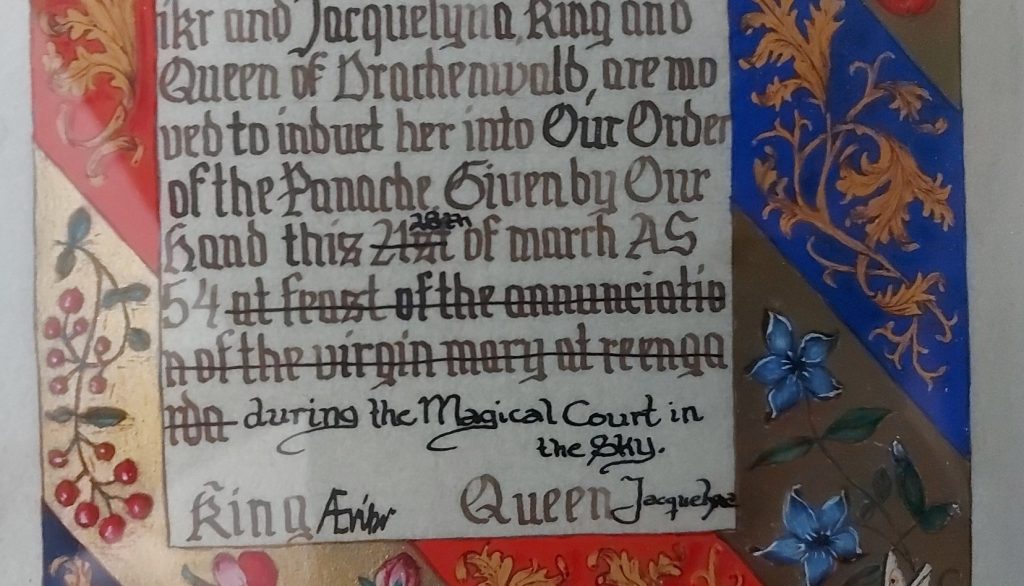 ikr and Jacquelyna, King and
Queen of Drachenwald, are mo
ved to induct her into Our Order
of the Panache. Given by Our
Hand this 21st 28th of march AS
54 at feast of the annunciatio
n of the virgin mary at reenga
rda during the Magical Court in
the Sky.
King Ævikr Queen Jacquelyna